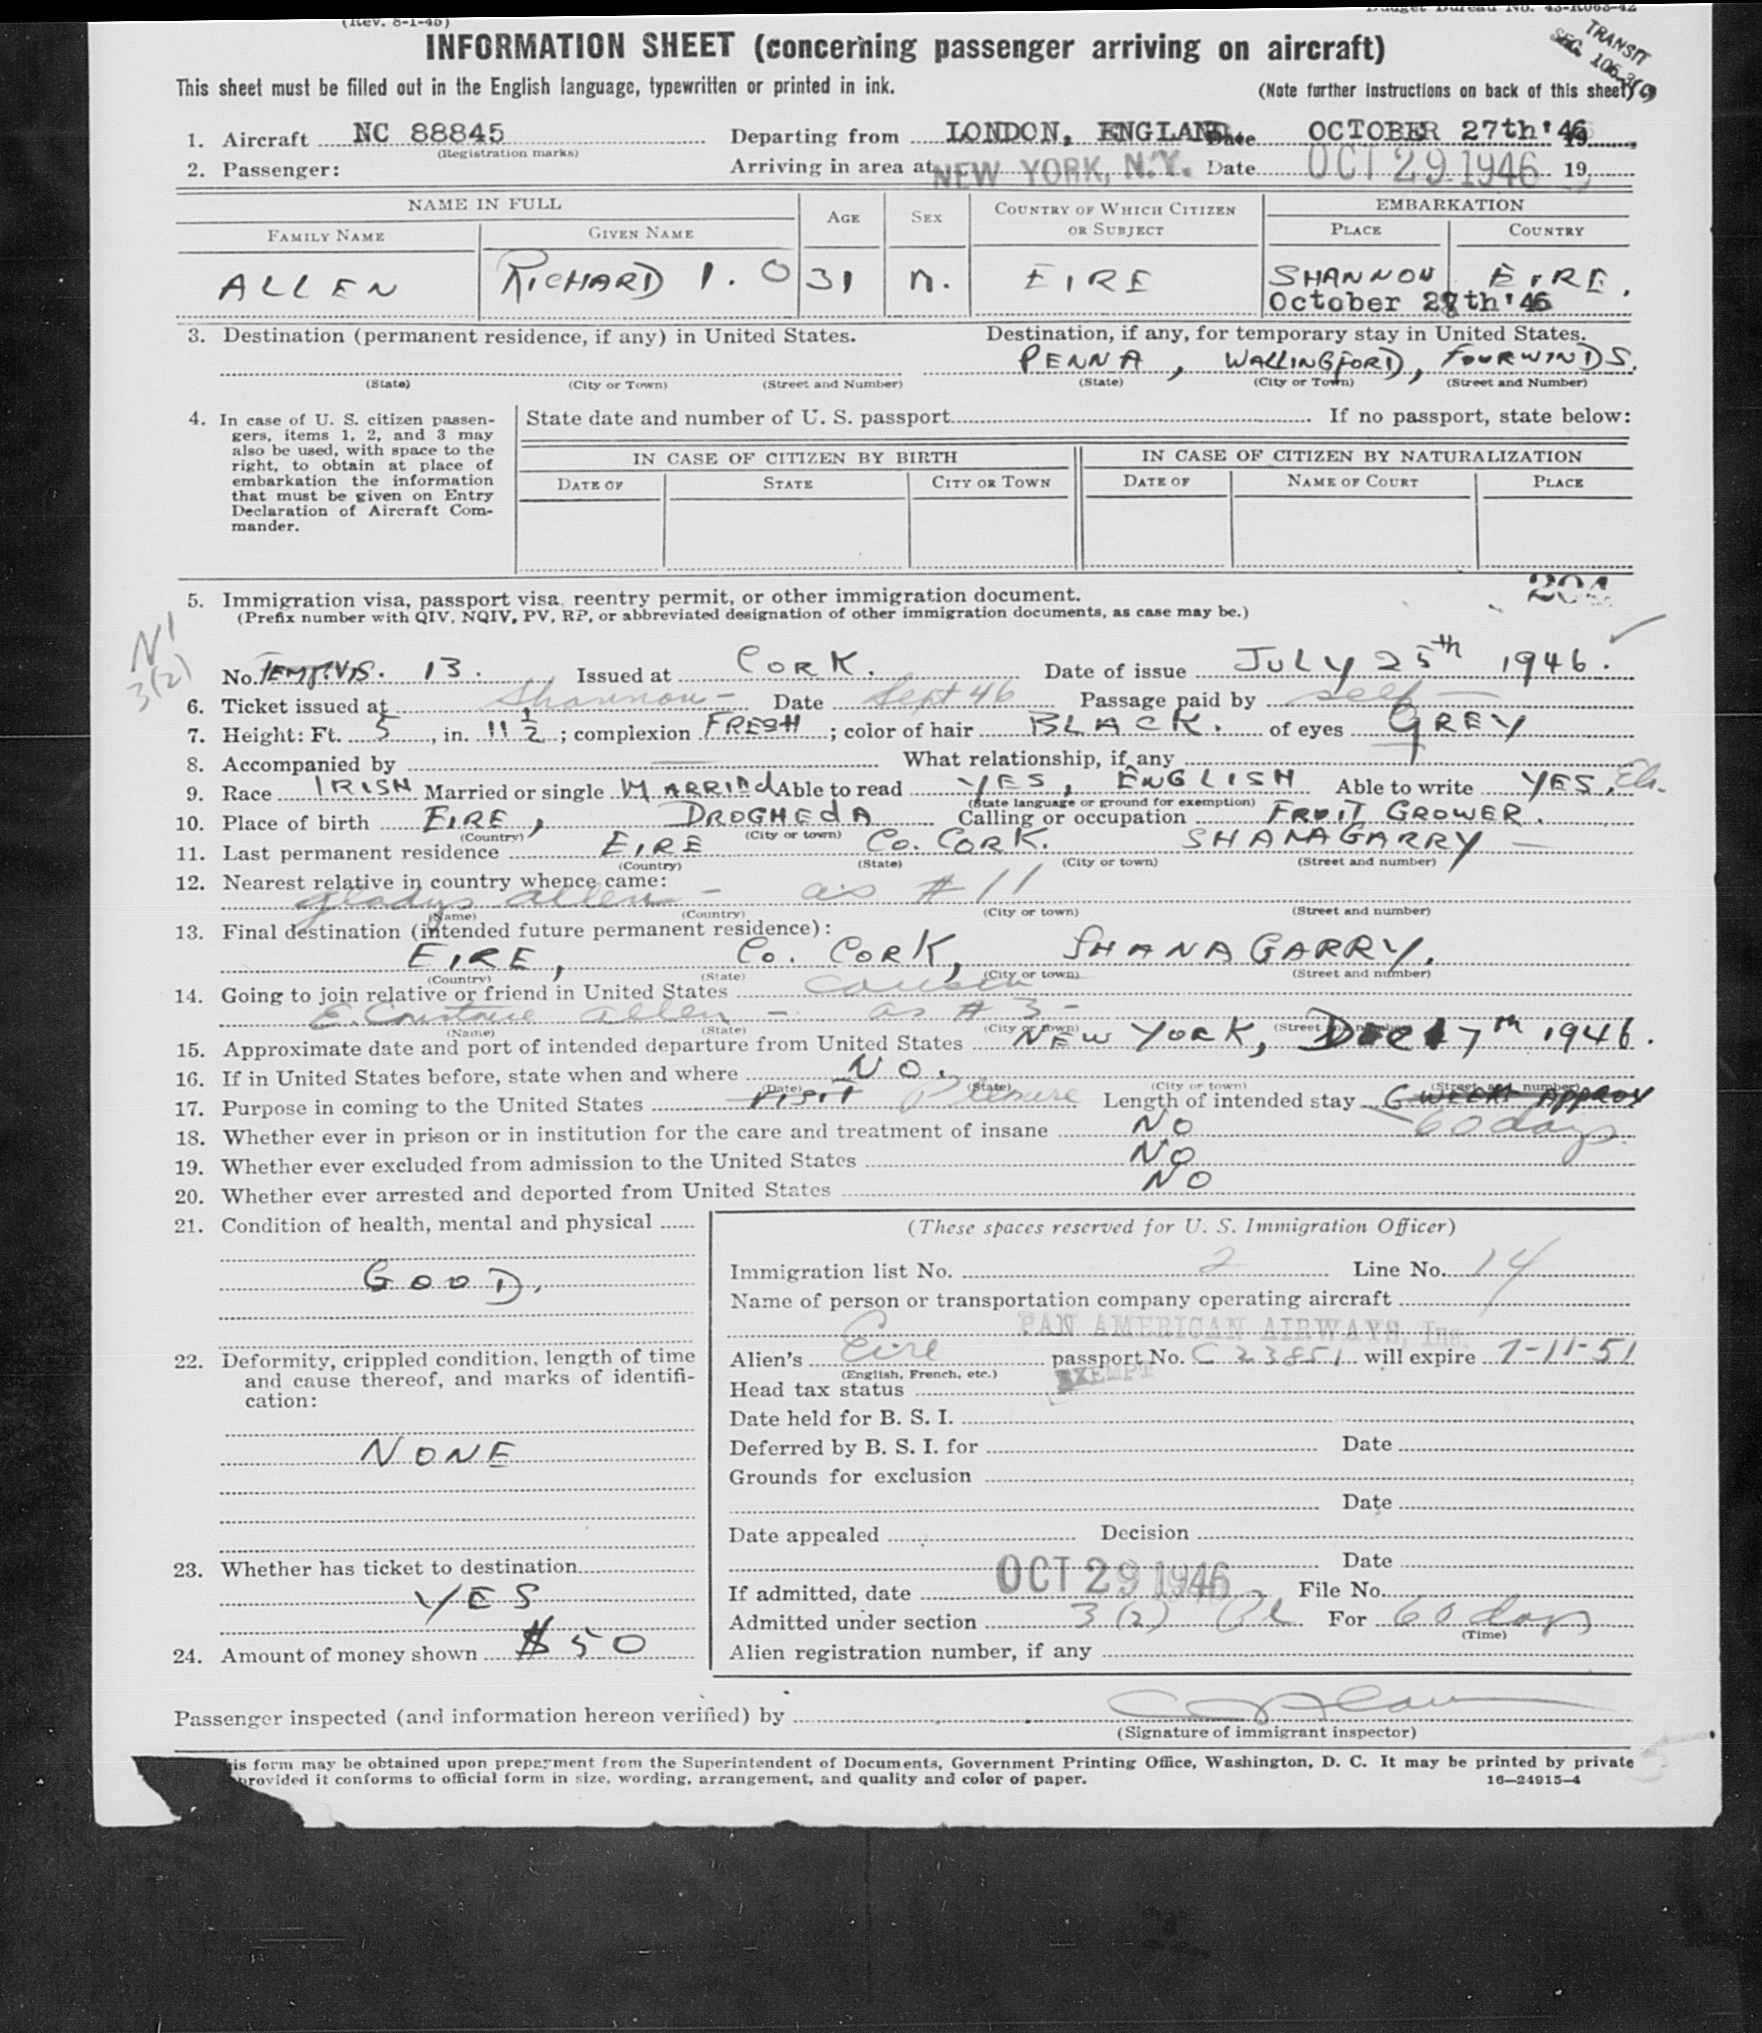 (Rev. 8-1-45)
Budget Bureau No. 43-R063-42
INFORMATION SHEET (concerning passenger arriving on aircraft)
TRANSIT
SEC. 106.3(9)
This sheet must be filled out in the English language, typewritten or printed in ink. (Note further instructions on back of this sheet)
1. Aircraft NC 88845 Departing from LONDON, ENGLAND. Date OCTOBER 27th '46 19
(Registration marks)
2. Passenger: Arriving in area at NEW YORK, N.Y. Date OCT 29 1946 19
NAME IN FULL AGE SEX COUNTRY OF WHICH CITIZEN OR SUBJECT EMBARKATION
FAMILY NAME GIVEN NAME PLACE COUNTRY
ALLEN RICHARD I. O 31 M. EIRE SHANNON EIRE.
October 28th '46
3. Destination (permanent residence, if any) in United States. Destination, if any, for temporary stay in United States.
PENNA, WALLINGFORD, FOURWINDS.
(State) (City or Town) (Street and Number) (State) (City or Town) (Street and Number)
4. In case of U. S. citizen passen-
gers, items 1, 2, and 3 may
also be used, with space to the
right, to obtain at place of
embarkation the information
that must be given on Entry
Declaration of Aircraft Com-
mander.
State date and number of U. S. passport If no passport, state below:
IN CASE OF CITIZEN BY BIRTH IN CASE OF CITIZEN BY NATURALIZATION
DATE OF STATE CITY OR TOWN DATE OF NAME OF COURT PLACE
5. Immigration visa, passport visa, reentry permit, or other immigration document.
(Prefix number with QIV, NQIV, PV, RP, or abbreviated designation of other immigration documents, as case may be.)
3(2)
No. TEMP. VIS. 13. Issued at CORK. Date of issue JULY 25th 1946.
6. Ticket issued at Shannon - Date Sept 46 Passage paid by self -
7. Height: Ft. 5, in. 11 1/2; complexion FRESH; color of hair BLACK. of eyes GREY
8. Accompanied by — What relationship, if any
9. Race IRISH Married or single MARRIED Able to read YES, ENGLISH Able to write YES,
(State language or ground for exemption)
10. Place of birth EIRE, DROGHEDA Calling or occupation FRUIT GROWER.
(Country) (City or town)
11. Last permanent residence EIRE Co. CORK. SHANAGARRY -
(Country) (State) (City or town) (Street and number)
12. Nearest relative in country whence came:
Gladys Allen - as # 11
(Name) (Country) (City or town) (Street and number)
13. Final destination (intended future permanent residence):
EIRE, Co. CORK, SHANAGARRY.
(Country) (State) (City or town) (Street and number)
14. Going to join relative or friend in United States Cousin
E. Constance Allen - as # 3 -
(Name) (State) (City or town) (Street and number)
15. Approximate date and port of intended departure from United States NEW YORK, Dec 17th 1946.
16. If in United States before, state when and where NO.
(Date) (State) (City or town) (Street and number)
17. Purpose in coming to the United States VISIT Pleasure Length of intended stay 6 WEEKS APPROX
60 days
18. Whether ever in prison or in institution for the care and treatment of insane NO
19. Whether ever excluded from admission to the United States NO
20. Whether ever arrested and deported from United States NO
21. Condition of health, mental and physical
GOOD.
22. Deformity, crippled condition, length of time
and cause thereof, and marks of identifi-
cation:
NONE
23. Whether has ticket to destination
YES
24. Amount of money shown $50
(These spaces reserved for U. S. Immigration Officer)
Immigration list No. 2 Line No. 14
Name of person or transportation company operating aircraft
PAN AMERICAN AIRWAYS, Inc.
Alien's Eire passport No. C 23851 will expire 7-11-51
(English, French, etc.)
Head tax status EXEMPT
Date held for B. S. I.
Deferred by B. S. I. for Date
Grounds for exclusion
Date
Date appealed Decision
Date
If admitted, date OCT 29 1946 File No.
Admitted under section 3(2) For 60 days
(Time)
Alien registration number, if any
Passenger inspected (and information hereon verified) by
(Signature of immigrant inspector)
is form may be obtained upon prepayment from the Superintendent of Documents, Government Printing Office, Washington, D. C. It may be printed by private
provided it conforms to official form in size, wording, arrangement, and quality and color of paper. 16—24915-4